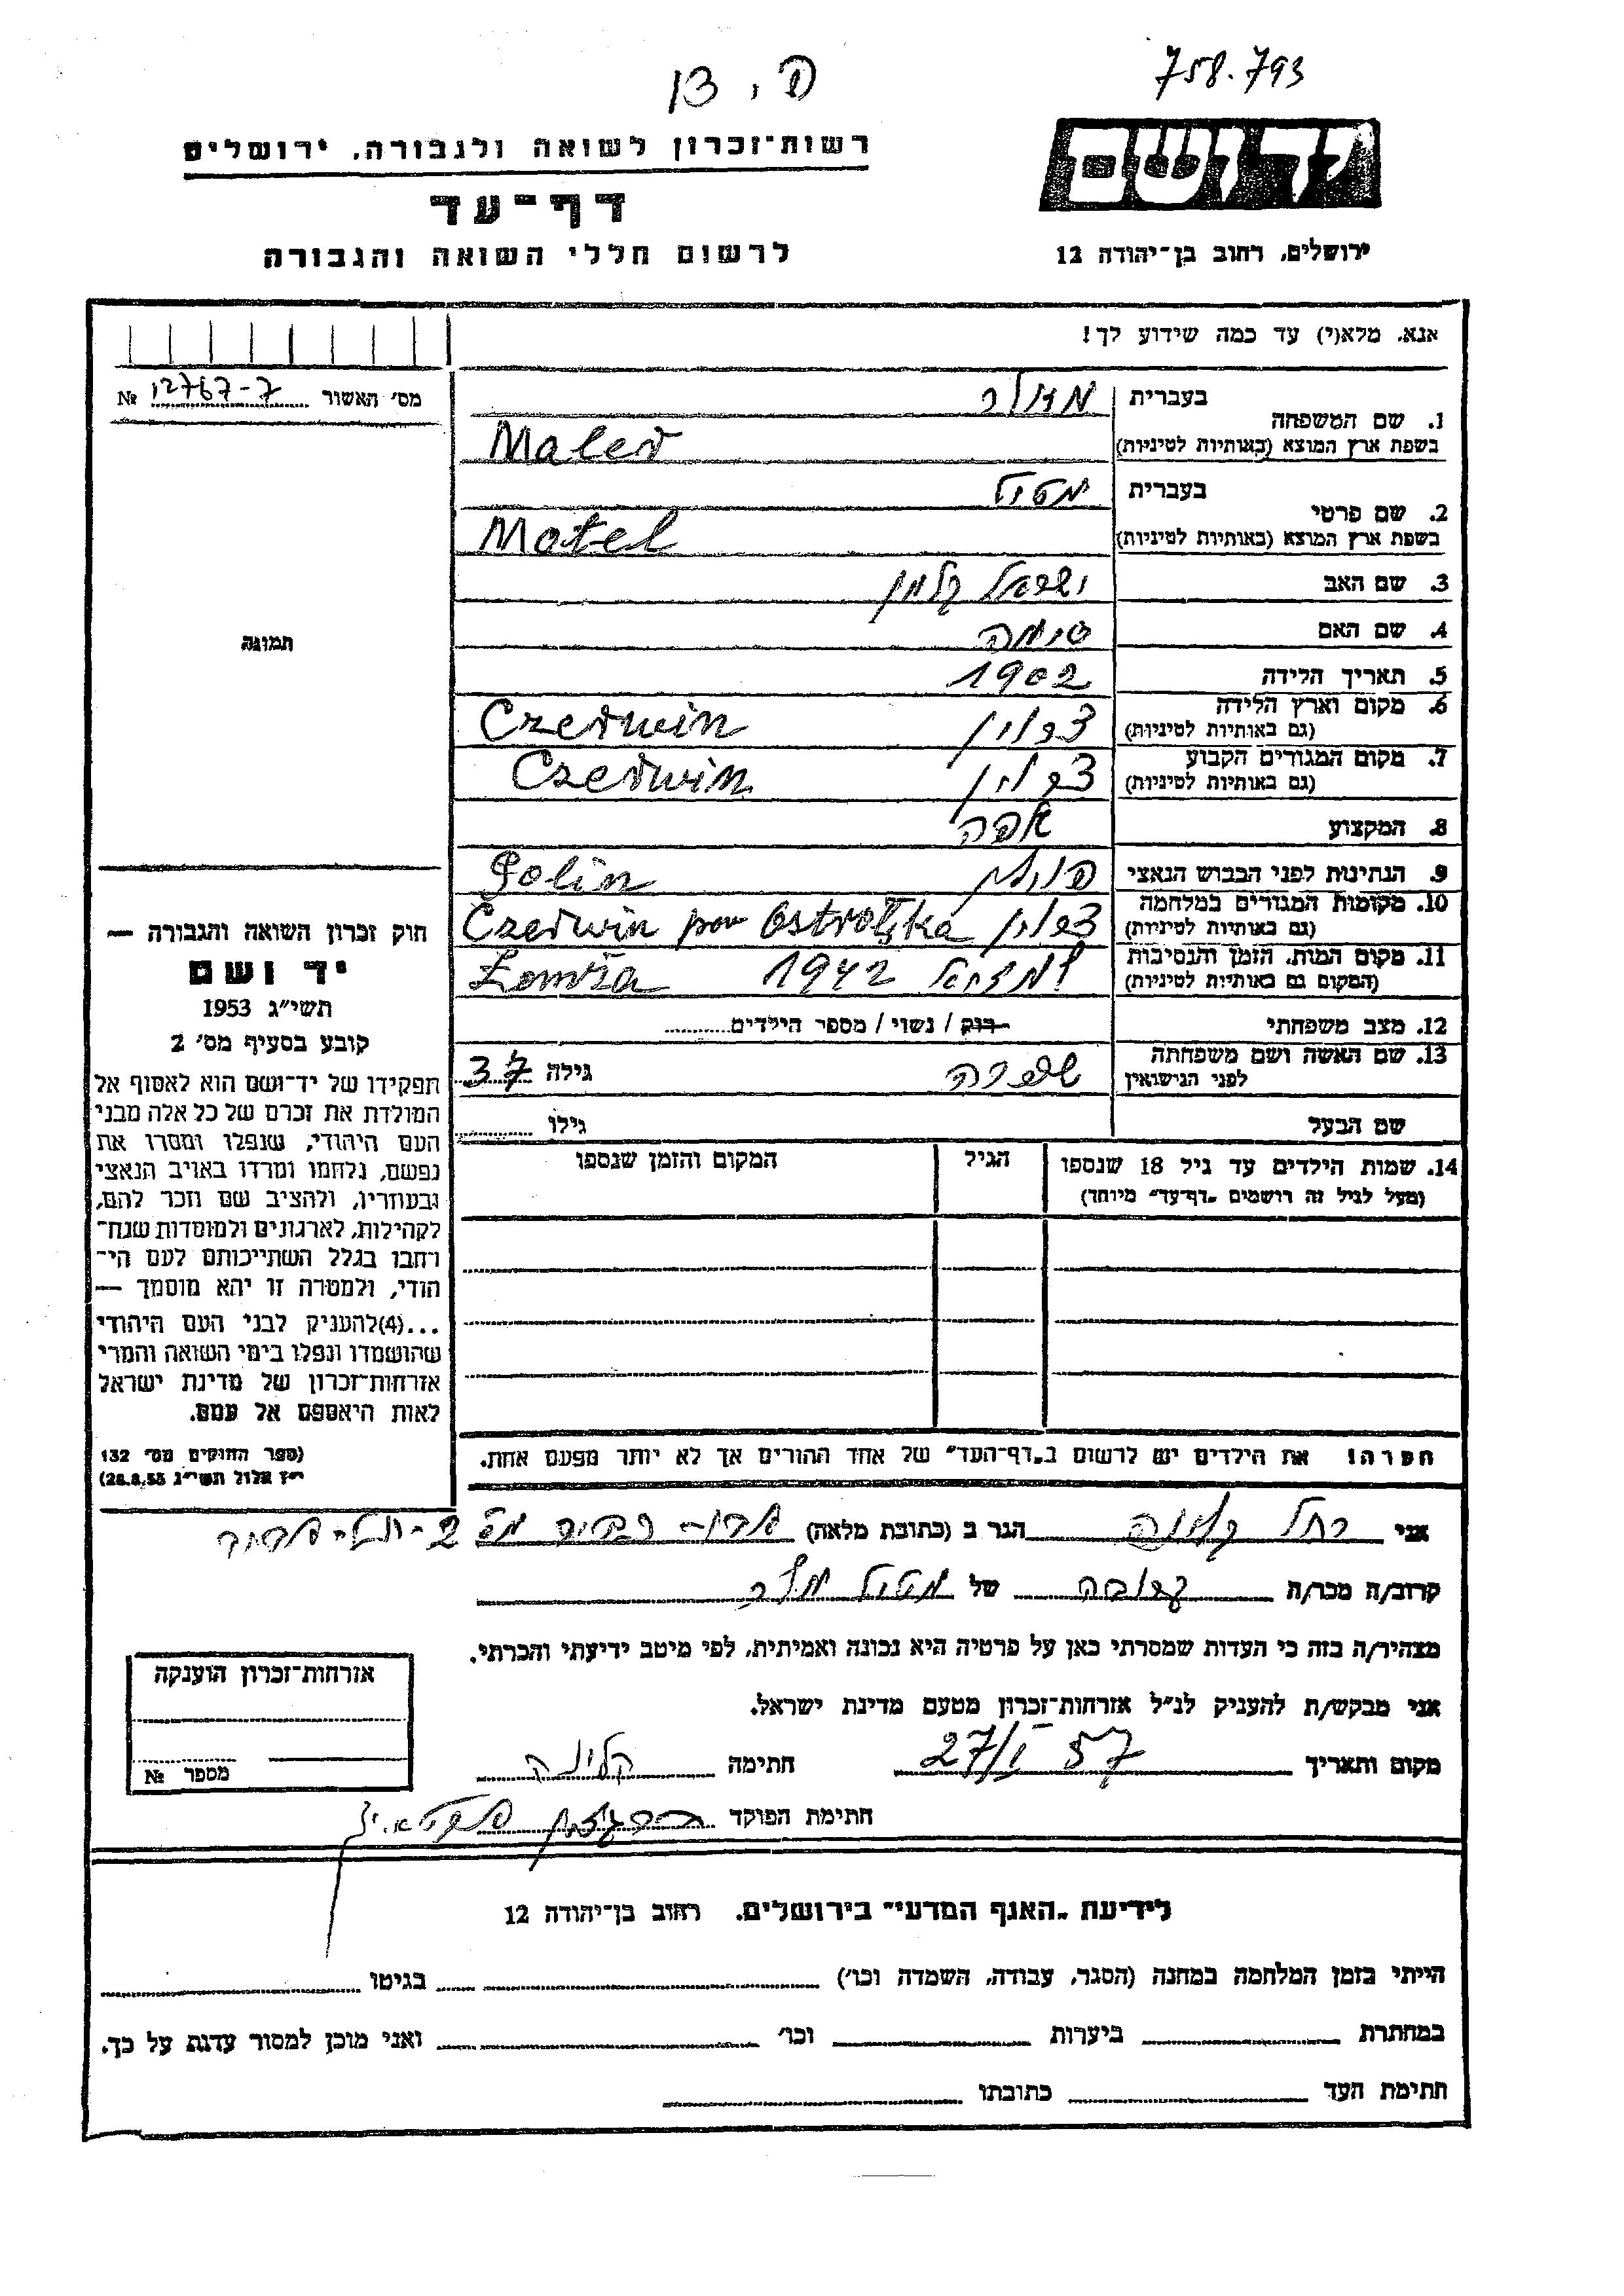 758.793
פ. צו
יד ושם
רשות־זכרון לשואה ולגבורה, ירושלים
דף־עד
לרשום חללי השואה והגבורה
ירושלים, רחוב בן־יהודה 12
אנא, מלא(י) עד כמה שידוע לך!
מס׳ האשור 12767-7 №
1. שם המשפחה
בעברית
בשפת ארץ המוצא (באותיות לטיניות) Maler
2. שם פרטי
בעברית מטיל
בשפת ארץ המוצא (באותיות לטיניות) Motel
3. שם האב ישראל קלמן
4. שם האם סימה
5. תאריך הלידה 1902
6. מקום וארץ הלידה
(גם באותיות לטיניות) Czerwin
7. מקום המגורים הקבוע
(גם באותיות לטיניות) Czerwin
8. המקצוע אפה
9. הנתינות לפני הכבוש הנאצי פולין Polin
10. מקומות המגורים במלחמה
(גם באותיות לטיניות) Czerwin pow Ostrołęka
11. מקום המות, הזמן והנסיבות
(המקום גם באותיות לטיניות) 1942 Łomża
12. מצב משפחתי רוק / נשוי / מספר הילדים
13. שם האשה ושם משפחתה
לפני הנישואין שפרה גילה 37
שם הבעל גילו
14. שמות הילדים עד גיל 18 שנספו
(מעל לגיל זה רושמים „דף־עד״ מיוחד)
הגיל
המקום והזמן שנספו
תמונה
חוק זכרון השואה והגבורה —
יד ושם
תשי״ג 1953
קובע בסעיף מס׳ 2
תפקידו של יד־ושם הוא לאסוף אל
המולדת את זכרם של כל אלה מבני
העם היהודי, שנפלו ומסרו את
נפשם, נלחמו ומרדו באויב הנאצי
ובעוזריו, ולהציב שם וזכר להם,
לקהילות, לארגונים ולמוסדות שנח־
רבו בגלל השתייכותם לעם הי־
הודי, ולמטרה זו יהא מוסמך —
...(4)להעניק לבני העם היהודי
שהושמדו ונפלו בימי השואה והמרי
אזרחות־זכרון של מדינת ישראל
לאות היאספם אל עמם.
(ספר החוקים מס׳ 132
י״ז אלול תשי״ג 28.8.53)
הערה! את הילדים יש לרשום ב„דף־העד״ של אחד ההורים אך לא יותר מפעם אחת.
אני רחל קלינה הגר ב (כתובת מלאה)
קרוב/ה מכר/ה קרובה של מטיל מלר
מצהיר/ה בזה כי העדות שמסרתי כאן על פרטיה היא נכונה ואמיתית, לפי מיטב ידיעתי והכרתי.
אני מבקש/ת להעניק לנ״ל אזרחות־זכרון מטעם מדינת ישראל.
מקום ותאריך 27/I 57 חתימה קלינה
חתימת הפוקד
אזרחות־זכרון הוענקה
מספר №
לידיעת „האגף המדעי״ בירושלים, רחוב בן־יהודה 12
הייתי בזמן המלחמה במחנה (הסגר, עבודה, השמדה וכו׳) בגיטו
במחתרת ביערות וכו׳ ואני מוכן למסור עדות על כך.
חתימת העד כתובתו